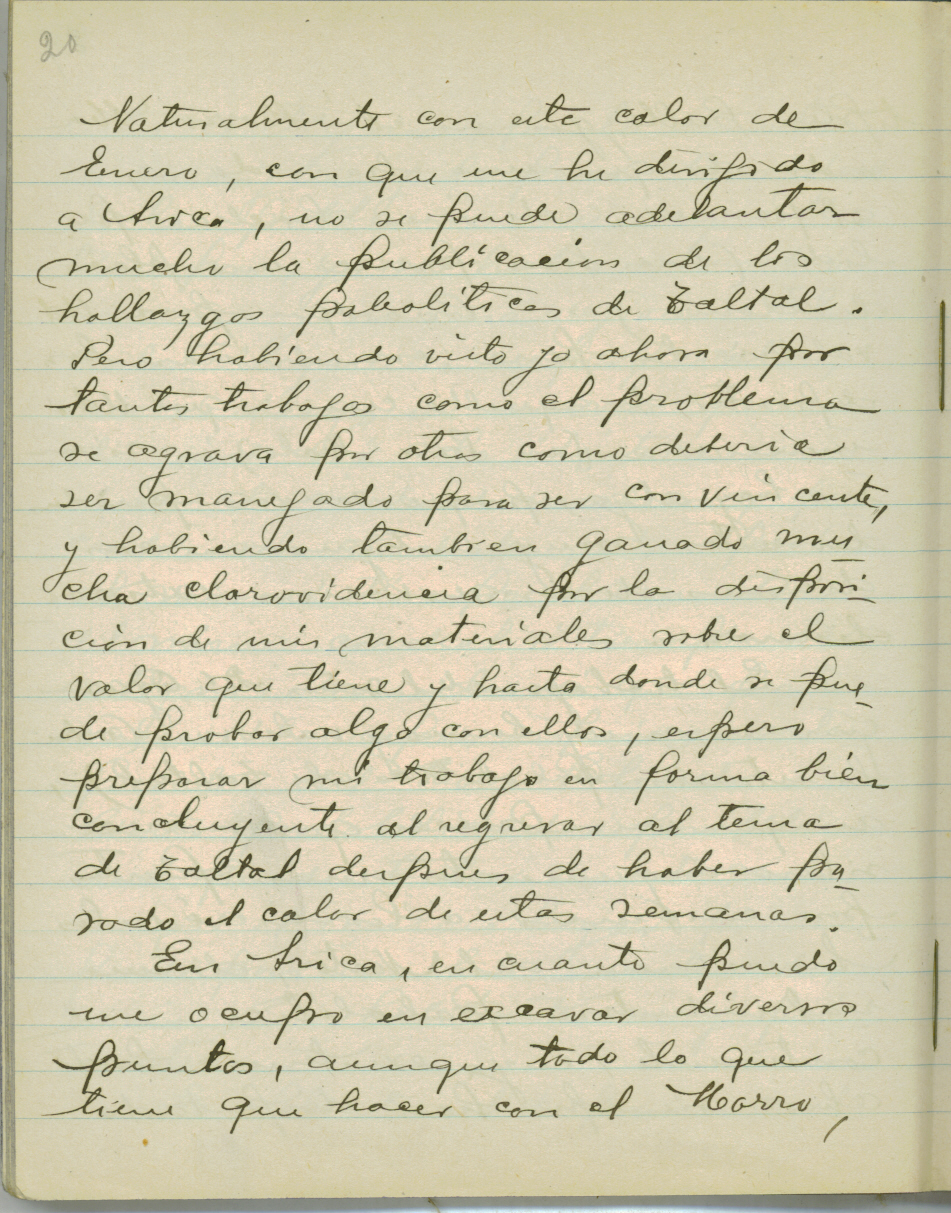 20
Naturalmente con este calor de
Enero, con que me he dirigido
a Arica, no se puede adelantar
mucho la publicacion de los
hallazgos paleolíticos de Taltal.
Pero habiendo visto yo ahora por
tantos trabajos como el problema
se agrava por otros como deberia
ser manejado para ser convincente,
y habiendo tambien ganado mu
cha clarovidencia por la disposi-
ción de mis materiales sobre el
valor que tiene y hasta donde se pue-
de probar algo con ellos, espero
preparar mi trabajo en forma bien
concluyente al regresar al tema
de Taltal despues de haber pa-
sado el calor de estas semanas.
En Arica, en cuanto puedo
me ocupo en excavar diversos
puntos, aunque todo lo que
tiene que hacer con el Morro,